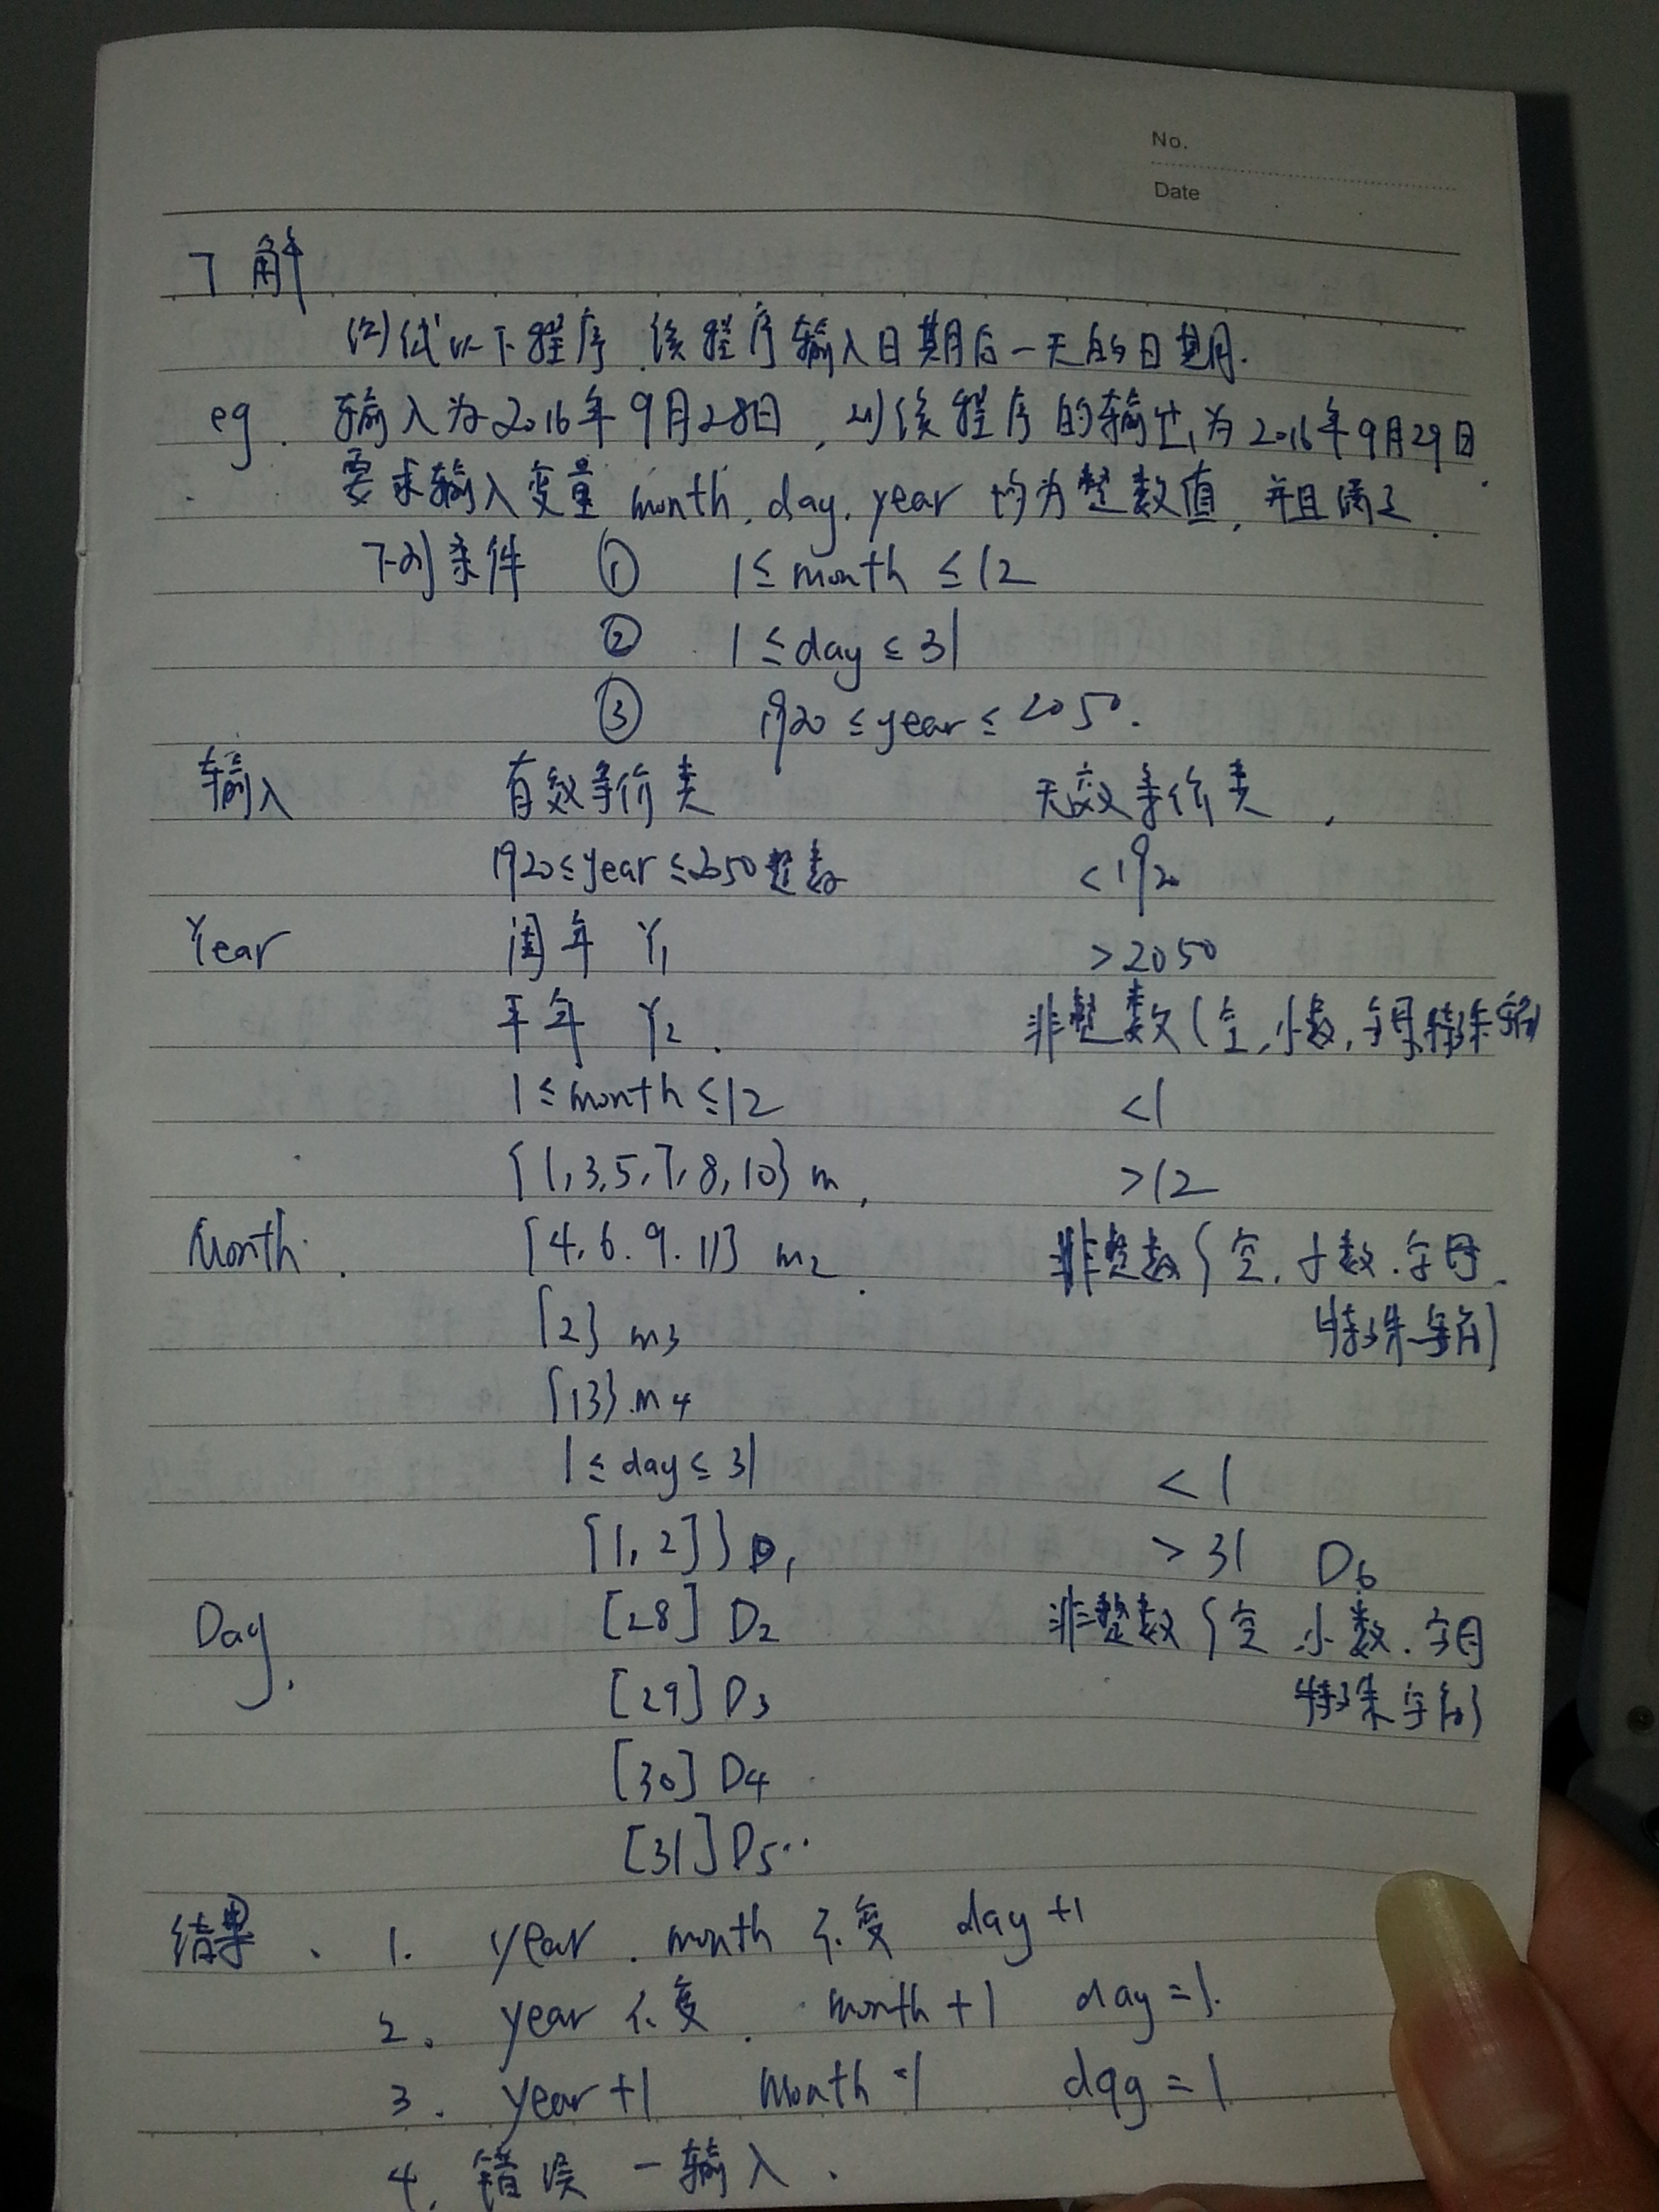 No.
Date
了解
测试以下程序.该程序输入日期后一天的日期.
eg. 输入为2016年9月28日,则该程序的输出为2016年9月29日
要求输入变量 month, day, year 均为整数值,并且满足
下列条件 ① 1≤month≤12
② 1≤day≤31
③ 1920≤year≤2050.
输入 有效等价类 无效等价类
1920≤year≤2050整数 <1920
Year 闰年 Y1 >2050
平年 Y2. 非整数(空,小数,字母特殊字符
1≤month≤12 <1
{1,3,5,7,8,10} m, >12
Month. {4,6.9.11} m2. 非整数{空,小数.字母.
{2} m3 特殊字符}
{13}.m4
1≤day≤31 <1
{1,2]} D1 >31 D6
Day. [28] D2 非整数{空.小数.字母
[29] D3 特殊字符}
[30] D4
[31] D5..
结果、1. year.month 不变 day+1
2. year 不变. month+1 day=1.
3. year+1 month=1 day=1
4. 错误一输入.